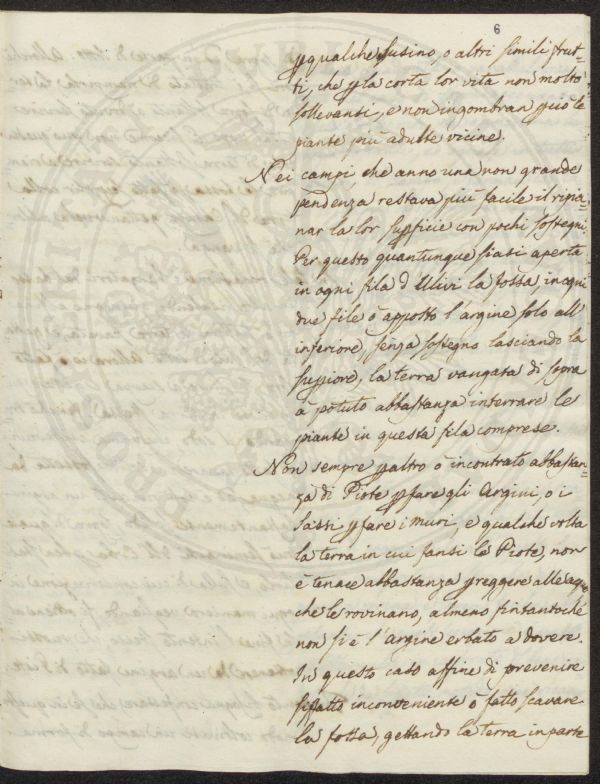 6
p qualche susino, o altri simili frut=
ti, che p la corta lor vita non molto
sollevanti, e non ingombran p ciò le
piante più adulte vicine.
Nei campi che anno una non grande
pendenza restava più facile il ripia=
nar la lor supficie con pochi sostegni.
Per questo quantunque siasi aperta
in ogni fila d'Ulivi la fossa, in ogni
due file ò apposto l'argine solo all'
inferiore, senza sostegno lasciando la
supiore, la terra vangata di sopra
à potuto abbastanza interrare le
piante in questa fila comprese.
Non sempre p altro ò incontrato abbastan=
za di Piote p fare gli Argini, o i
Sassi p fare i muri, e qualche volta
la terra in cui fansi le Piote, non
è tenace abbastanza p reggere alle acque
che le rovinano, almeno fintantoché
non si è l'argine erbato a dovere.
In questo caso affine di prevenire
siffatto inconveniente ò fatto scavare
la fossa, gettando la terra in parte